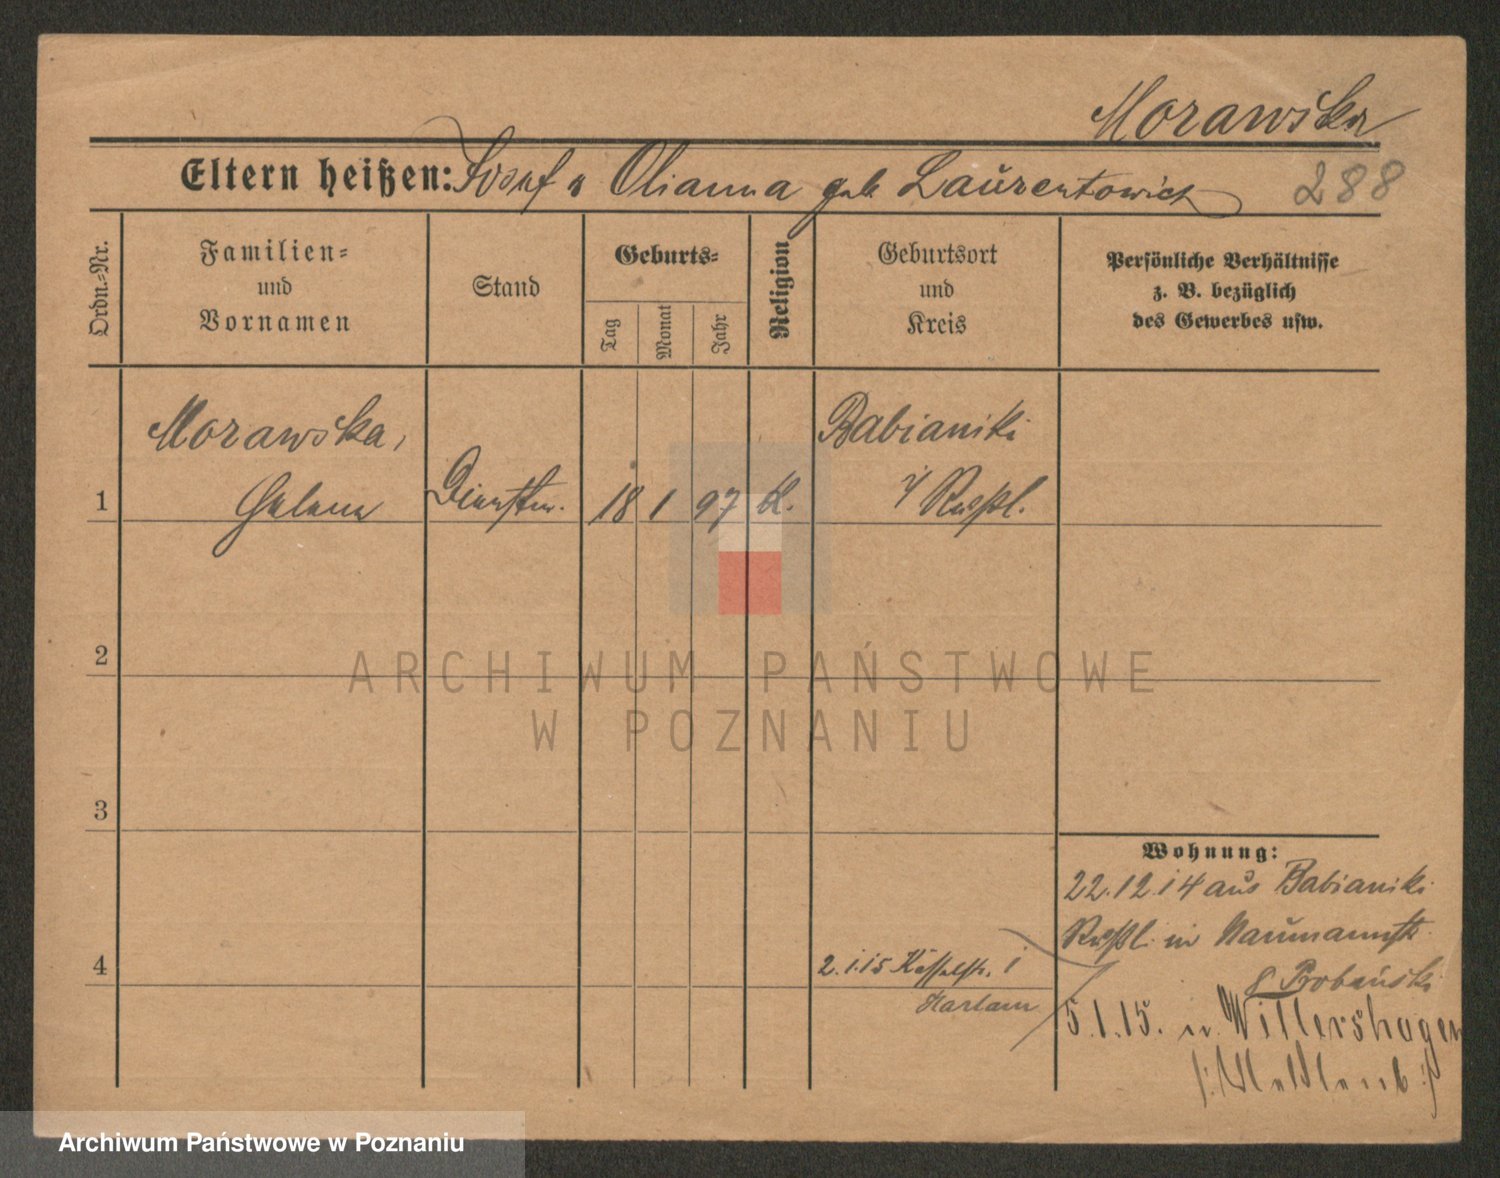 Morawska
288
Eltern heißen: Josef u Olianna geb. Laurentowicz
Ordn.-Nr.
Familien-
und
Vornamen
Stand
Geburts-
Tag
Monat
Jahr
Religion
Geburtsort
und
Kreis
Persönliche Verhältnisse
z. B. bezüglich
des Gewerbes usw.
1
Morawska,
Helena
Dienstm.
18 1 97 K.
Babianiki
i/ Russl.
2
3
4
Wohnung:
22.12.14 aus Babianiki
Russl. in Naumannstr.
8 Probański
2.1.15 1
Harlam
5.1.15. n. Willershagen
ARCHIWUM PAŃSTWOWE
W POZNANIU
Archiwum Państwowe w Poznaniu